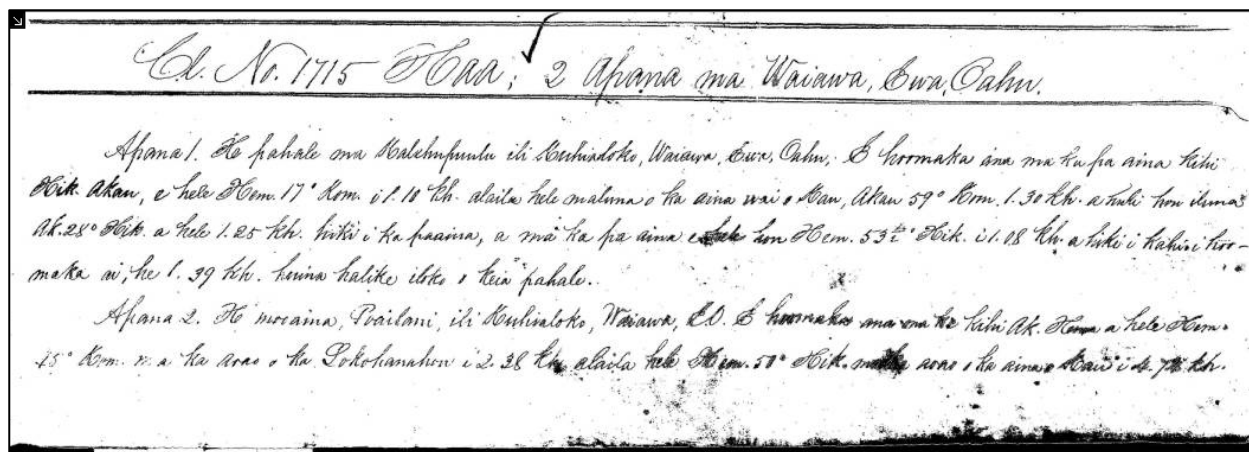 Cl. No. 1715 Haa; 2 Apana ma Waiawa, Ewa, Oahu.
Apana 1. He pahale ma ili Kuhialoko, Waiawa, Ewa, Oahu. E hoomaka ana ma ka pa aina kihi
Hik. Akau, e hele Hem. 17° Kom. i 1.10 kh. alaila hele maluna o ka aina wai o Kau, Akau 59° Kom. 1.30 kh. a huli hou iluna
Ak. 28° Hik. a hele 1.25 kh. hiki i ka paaina, a ma ka pa aina hou Hem. 53½° Hik. i 1.08 kh. a hiki i kahi i hoo-
maka ai, he 1.39 kh. huina halike iloko o keia pahale.
Apana 2. He mooaina, ili Kuhialoko, Waiawa, E.O. E hoomaka ana ma ke kihi Ak. a hele Hem.
45° Kom. ma ka aoao o ka Lokohanahou i 2.38 kh. alaila hele Hem. 50° Hik. ma ka aoao o ka aina o Kau i kh.